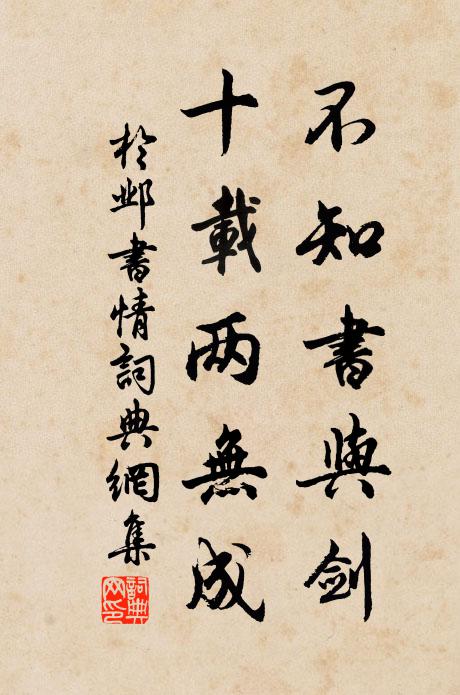 不知書與剑
十載两無成
於邺書情詞典網集
詞典
网印